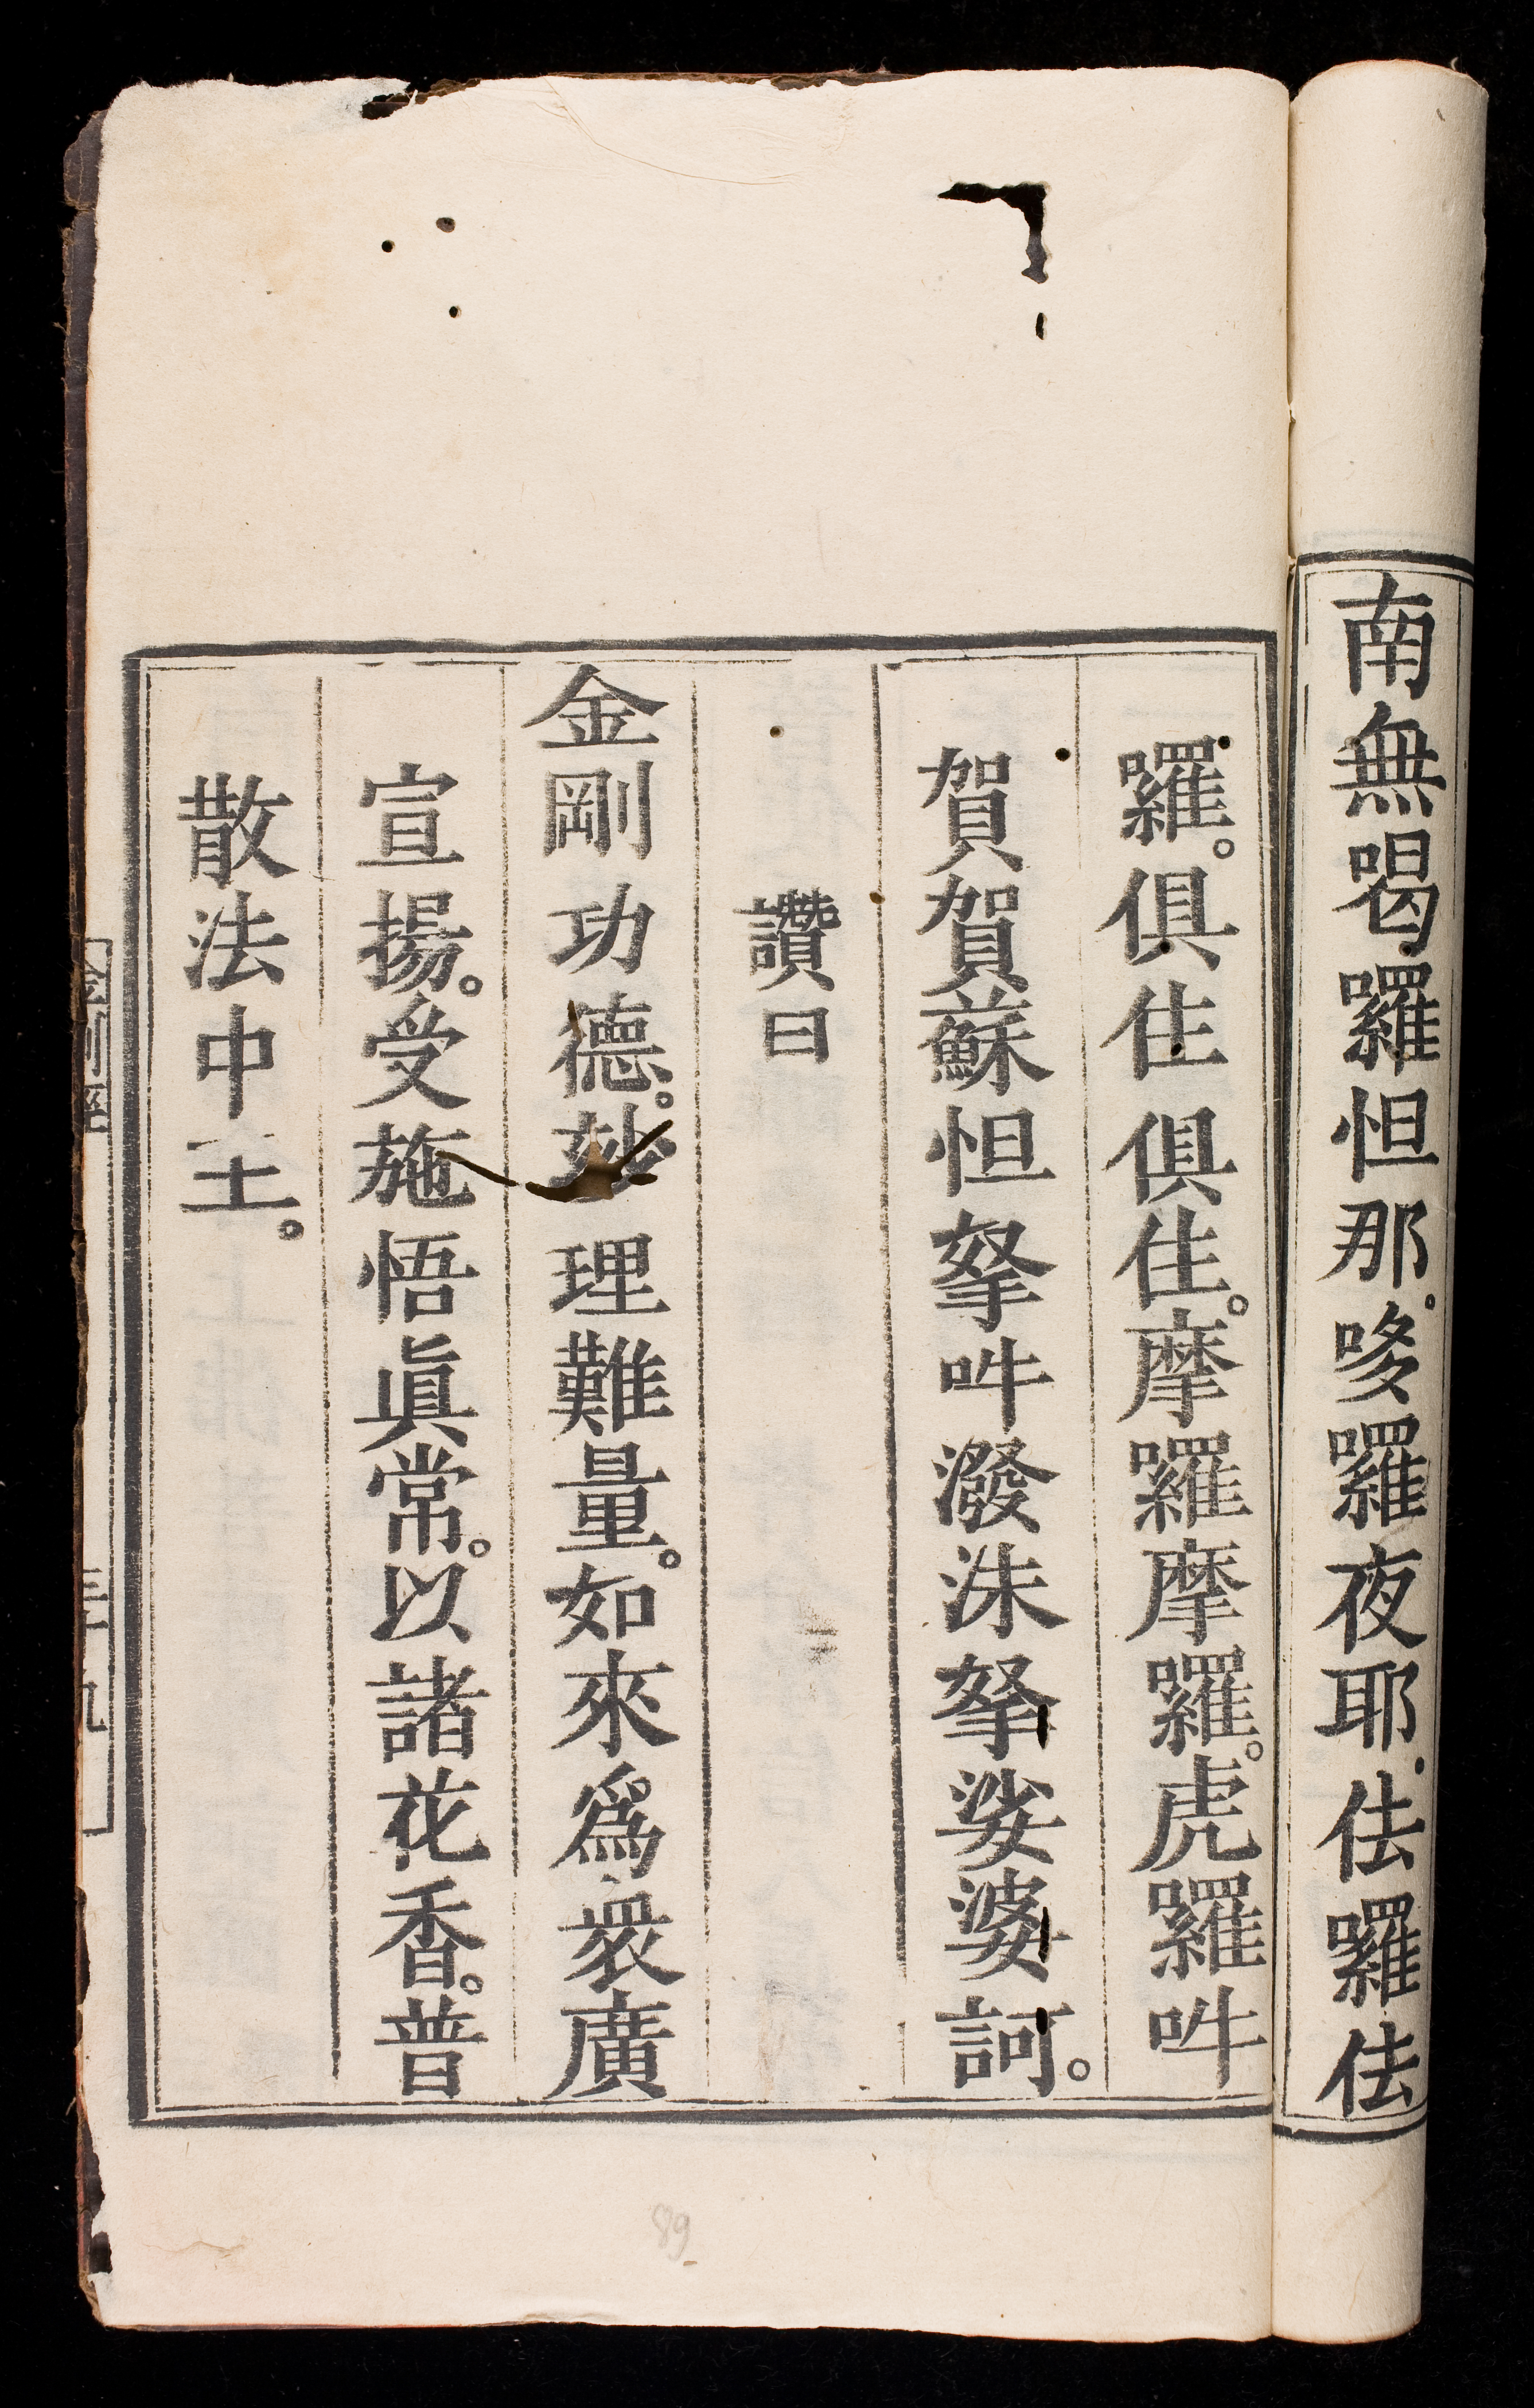 南無喝囉怛那哆囉夜耶佉囉佉
囉。俱住俱住。摩囉摩囉。虎囉吽
賀賀蘇怛拏吽潑沬拏娑婆訶。
讚曰
金剛功德。妙理難量。如來為衆廣
宣揚。受施悟眞常。以諸花香。普
散法中王。
三十九
89